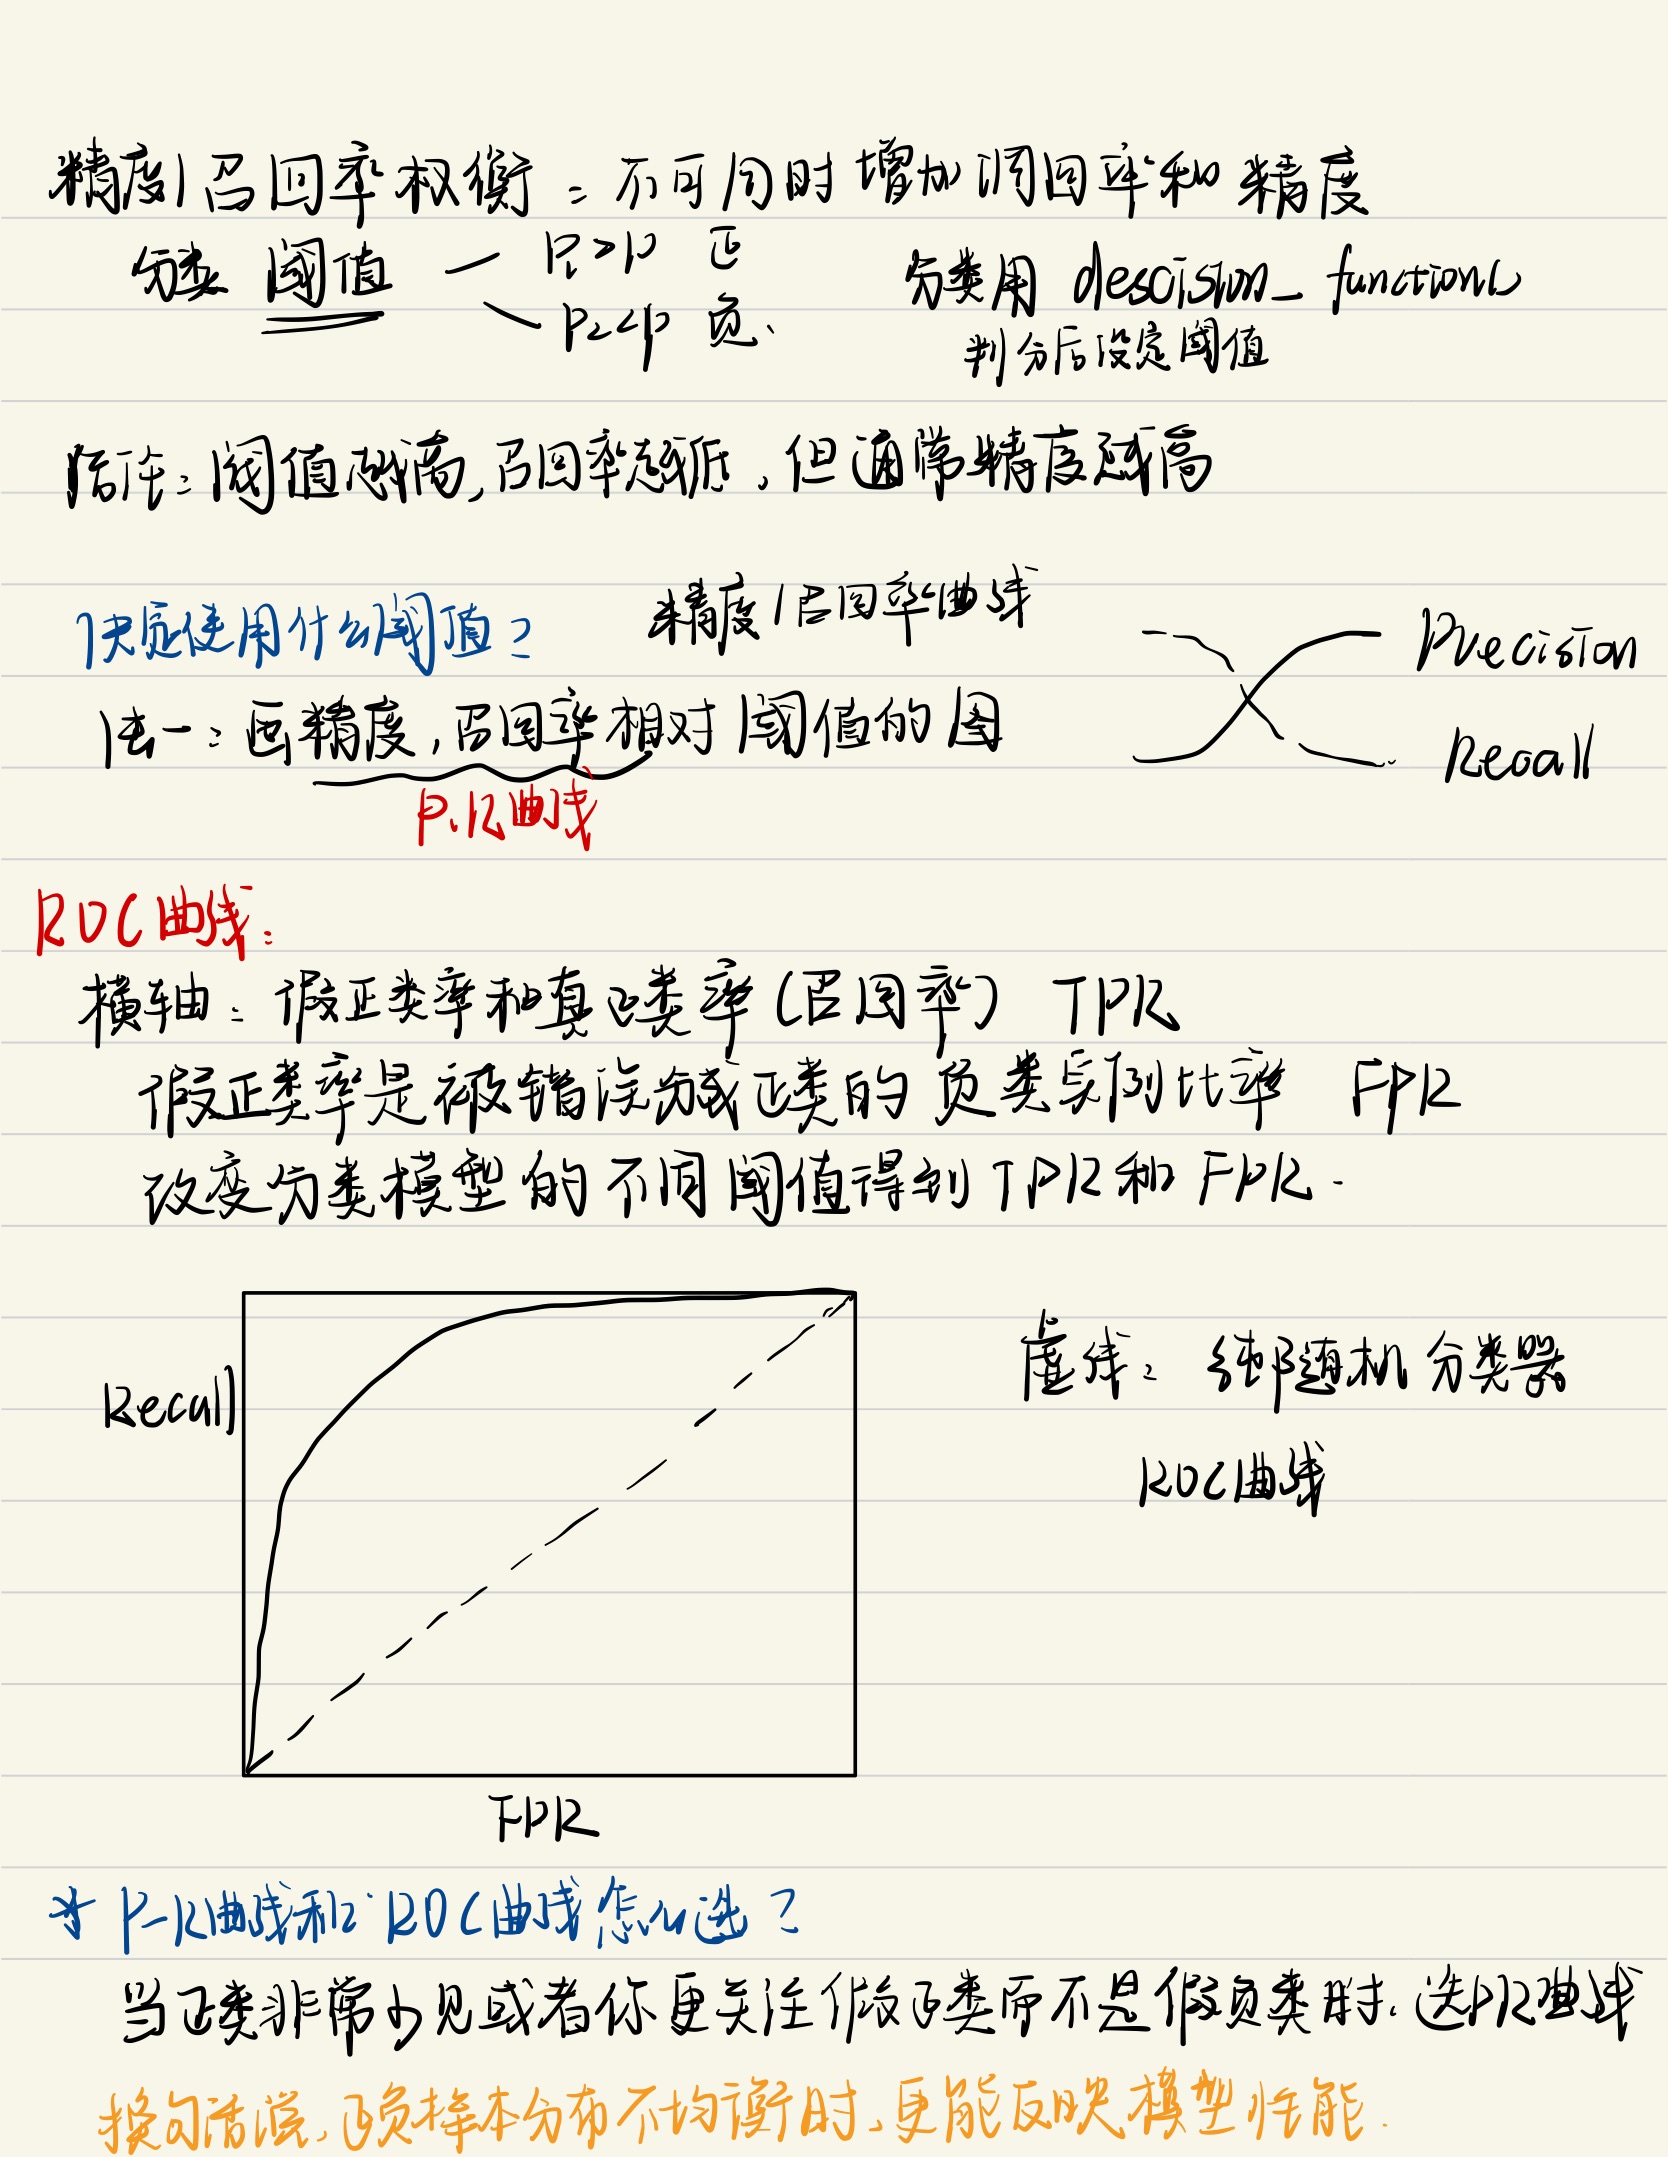 精度/召回率权衡：不可同时增加调回率和精度
分类 阈值 P₁>p 正
P₂<p 负、
分类用 descision_function()
判分后设定阈值
结论：阈值越高,召回率越低，但通常精度越高
决定使用什么阈值？
精度/召回率曲线
法一：画精度,召回率相对阈值的图
P.R曲线
Precision
Recall
ROC曲线：
横轴：假正类率和真正类率(召回率) TPR
假正类率是被错误分成正类的负类实例比率 FPR
改变分类模型的不同阈值得到TPR和FPR.
Recall
FPR
虚线：纯随机分类器
ROC曲线
* P-R曲线和ROC曲线怎么选？
当正类非常少见或者你更关注假正类而不是假负类时.选PR曲线
换句话说,正负样本分布不均衡时,更能反映模型性能.